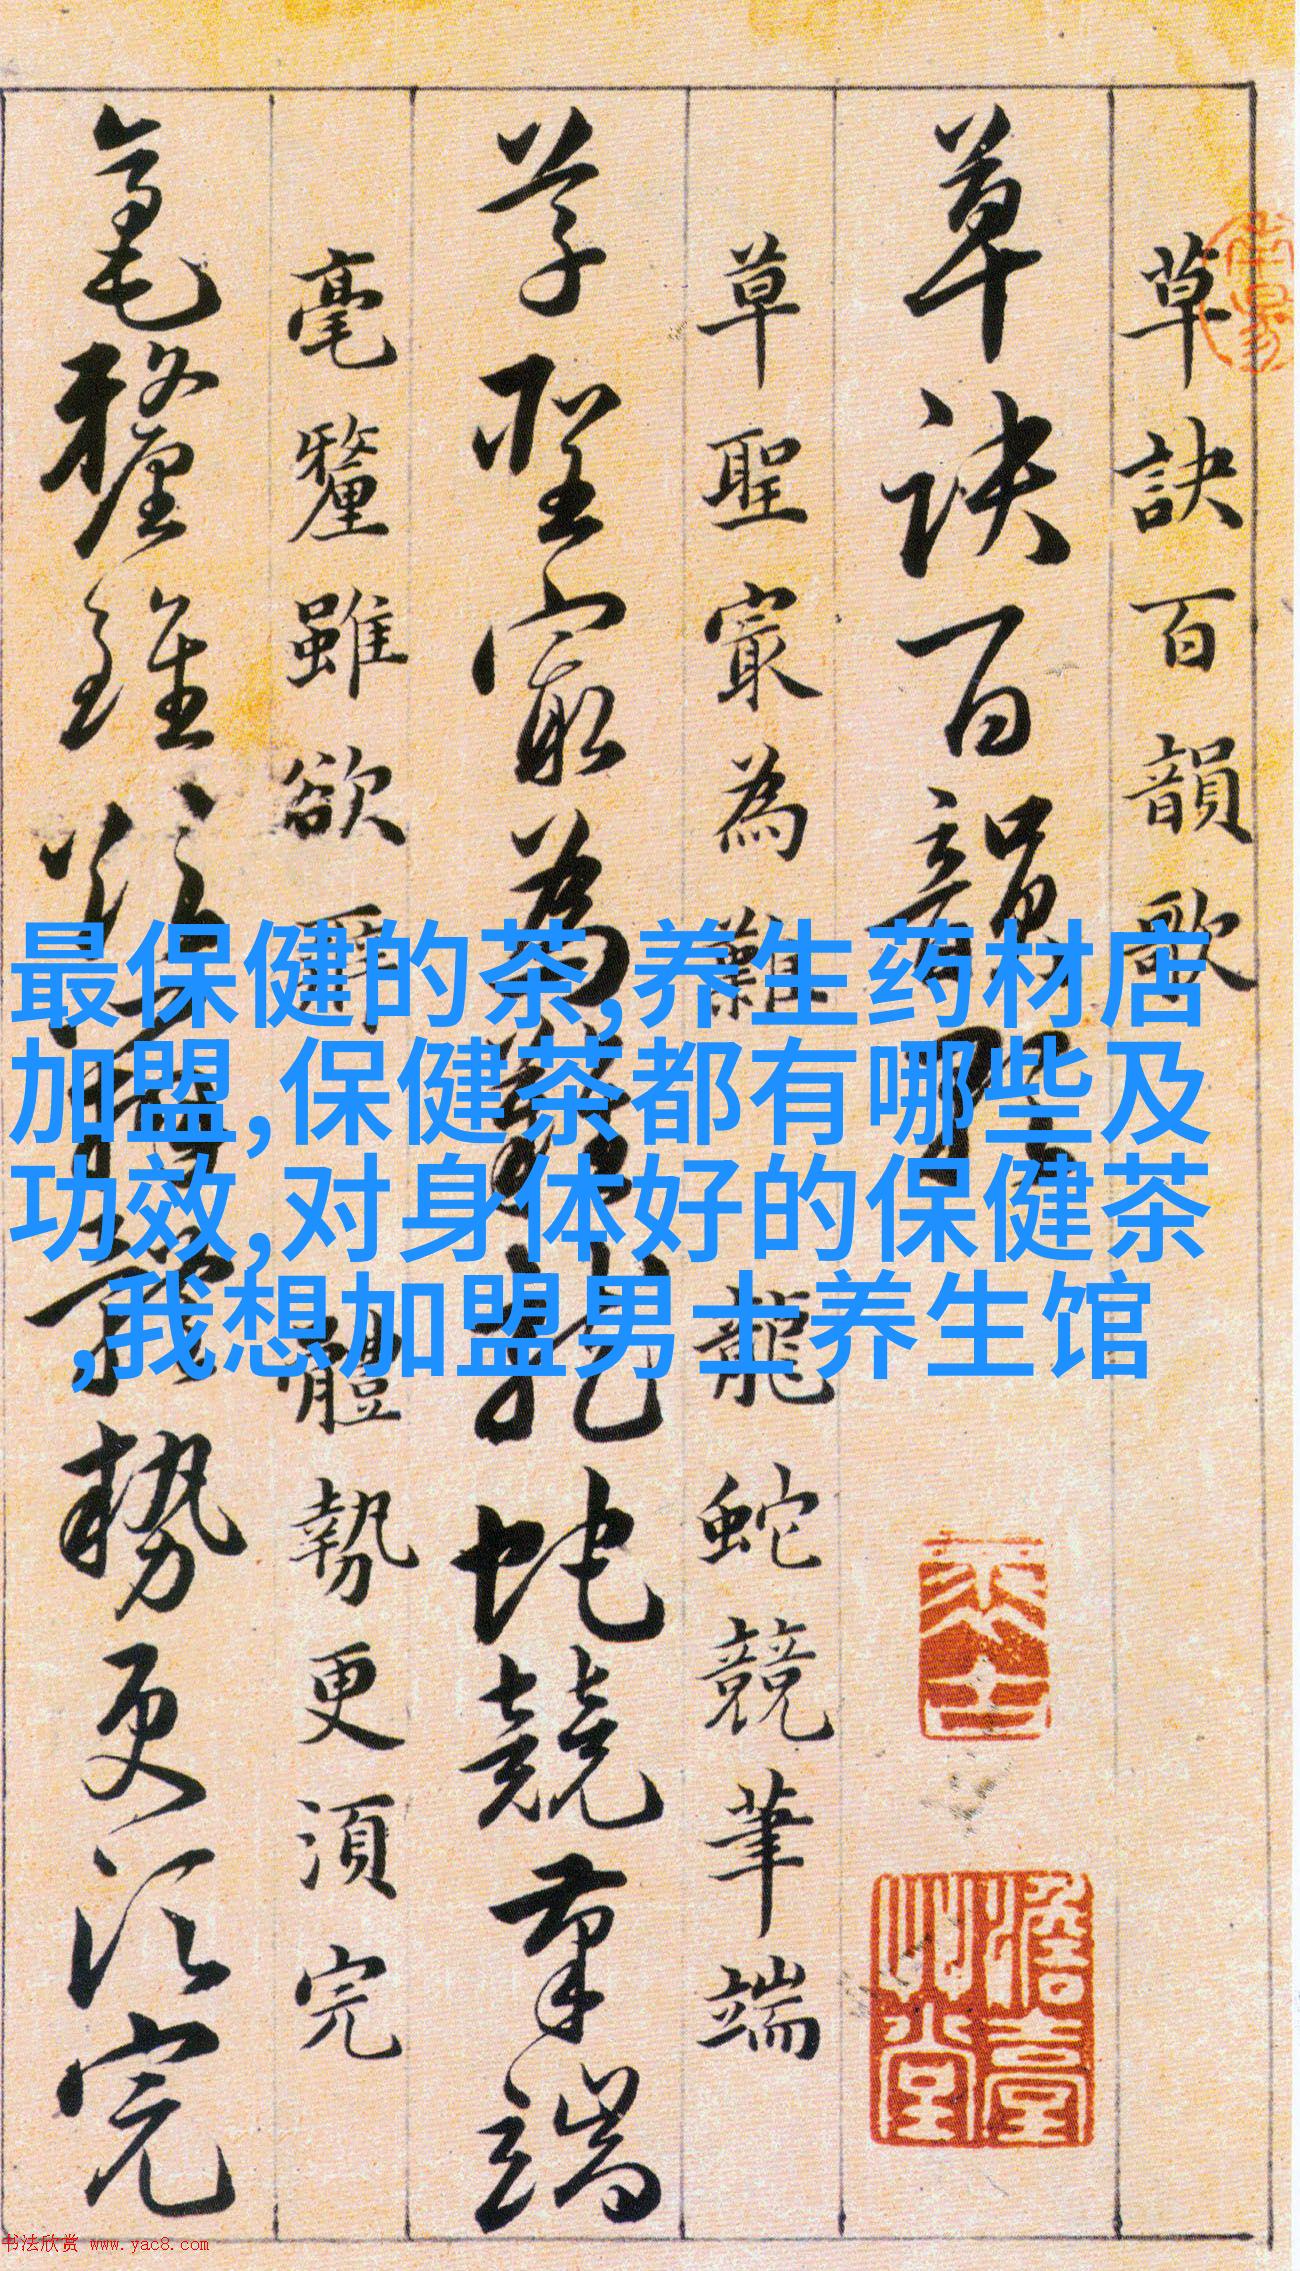 草訣百韻歌
草訣百韻歌
草聖宸為難龍蛇競筆端
草聖宸為難龍蛇競筆端
毫釐雖欲辭體勢更須完
毫釐雖欲辭體勢更須完
最保健的茶,养生药材店
加盟,保健茶都有哪些及
功效,对身体好的保健茶
,我想加盟男士养生馆
书法欣赏 www.yac8.com